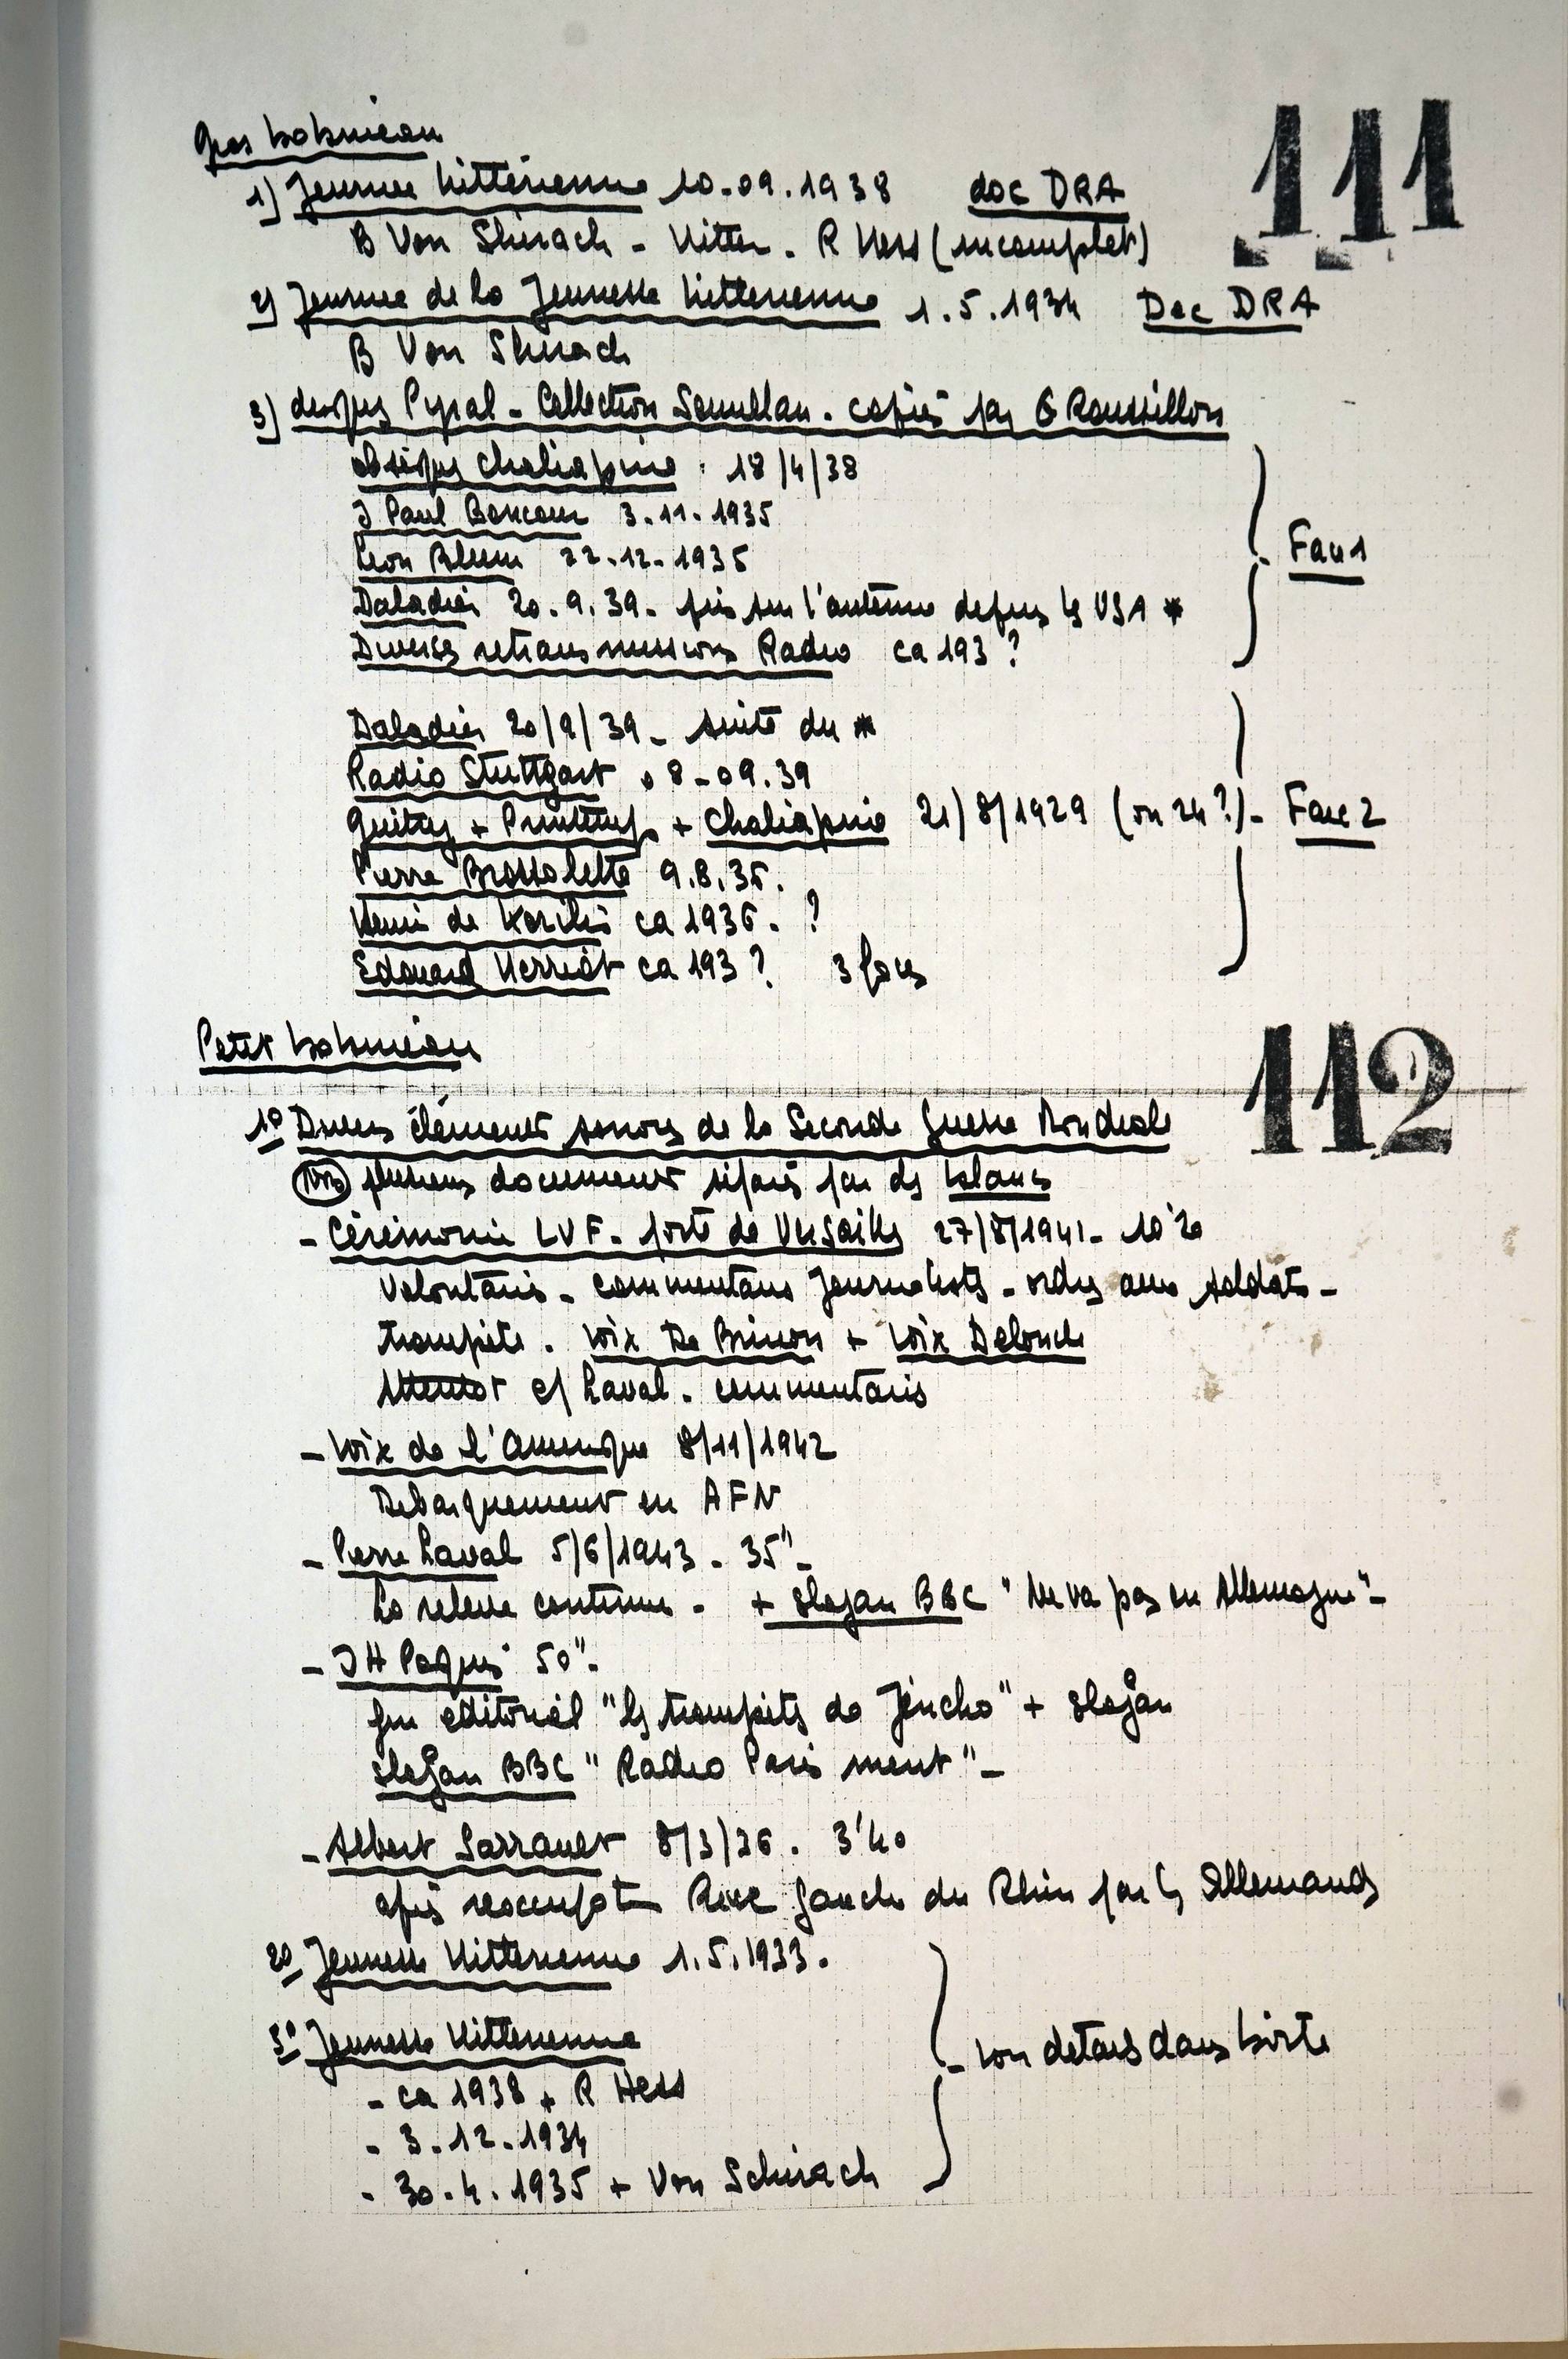 Gros bobineau
111
1) Jeunesse hitlérienne 10-09.1938 doc DRA
B Von Shirach - Hitler - R Hess (incomplet)
2) Journée de la Jeunesse hitlerienne 1.5.1934 Doc DRA
B Von Shirach
3) disques Pyral - Collection - copiés par G Roussillon
obsèques Chaliapine : 18/4/38
J Paul Boncour 3.11.1935
Léon Blum 22-12-1935
Daladier 20.9.39 - pris sur l'antenne depuis les USA *
Diverses retransmissions Radio ca 193 ?
Face 1
Daladier 20/9/39 - suite du *
Radio Stuttgart 08-09.39
Guitry + Printemps + Chaliapine 21/8/1929 (ou 24 ?) - Face 2
Pierre Brossolette 9.8.35.
Henri de Kerilis ca 1936. ?
Edouard Herriot ca 193 ? 3 faces
Petit bobineau
112
1° Divers éléments sonores de la Seconde Guerre Mondiale
plusieurs documents séparés par des blancs
- Cérémonie LVF - porte de Versailles 27/8/1941 - 10'20
Volontaires - commentaires journalistes - ordres aux soldats -
trompette. Voix De Brinon + Voix Deloncle
Attentat c/ Laval - commentaires
- Voix de l'Amérique 8/11/1942
Debarquement en AFN
- Pierre Laval 5/6/1943 - 35" -
La relève continue - + slogan BBC "Ne va pas en Allemagne" -
- JH Paquis 50" -
fin éditorial "les trompettes de Jéricho" + slogan
slogan BBC "Radio Paris ment" -
- Albert Sarraut 8/3/36. 3'40
après reoccupat Rive gauche du Rhin par les Allemands
2° Jeunesse Hitlerienne 1.5.1933.
3° Jeunesse Hitlerienne
- voir details dans boite
- ca 1938 + R Hess
- 3.12.1934
- 30.4.1935 + Von Schirach